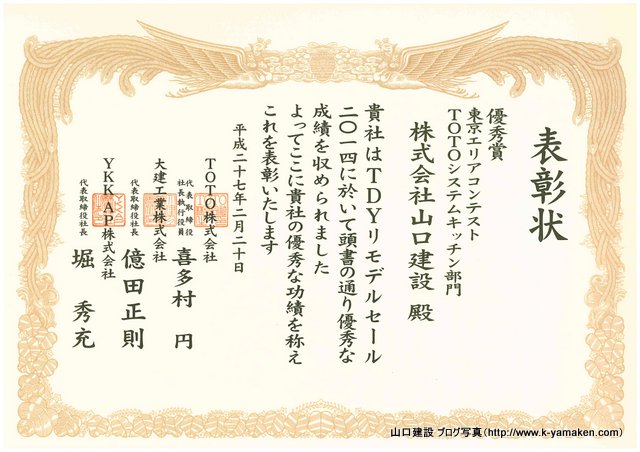 表彰状
優秀賞
東京エリアコンテスト
TOTOシステムキッチン部門
株式会社山口建設 殿
貴社はTDYリモデルセール
二〇一四に於いて頭書の通り優秀な
成績を収められました
よってここに貴社の優秀な功績を称え
これを表彰いたします
平成二十七年二月二十日
TOTO株式会社
代表取締役
社長執行役員
喜多村 円
大建工業株式会社
代表取締役社長
億田正則
YKK AP株式会社
代表取締役社長
堀 秀充
山口建設 ブログ写真(http://www.k-yamaken.com)